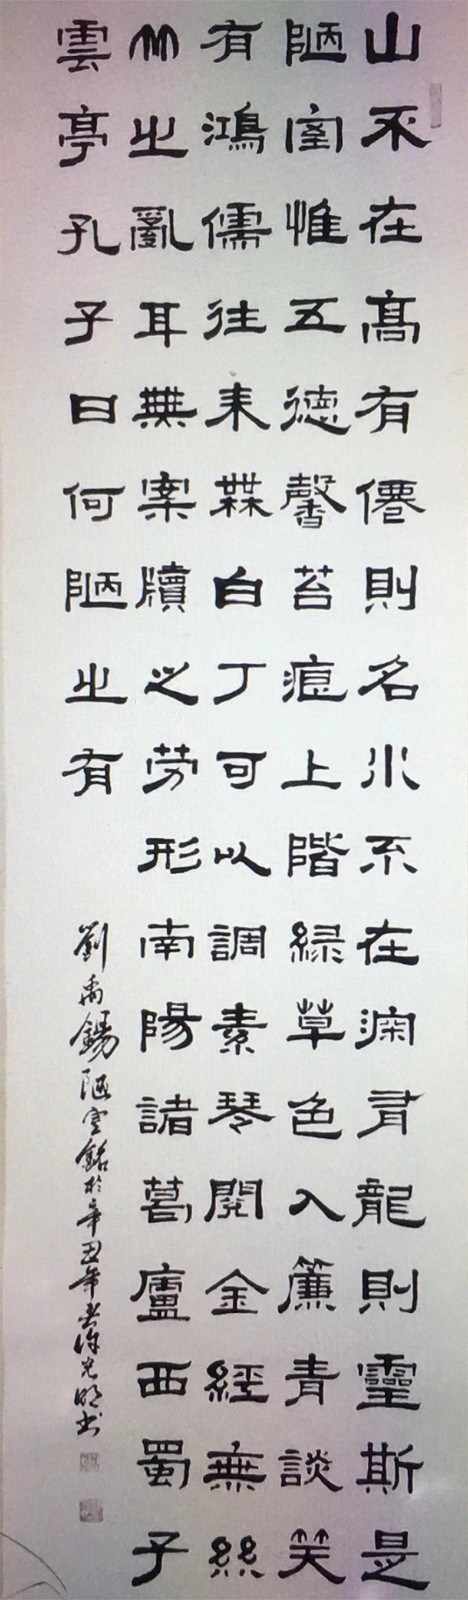 山不在髙有僊則名水不在深有龍則靈斯是
陋室惟五德馨苔痕上階緑草色入簾青談笑
有鴻儒往来無白丁可以調素琴閲金經無絲
竹之亂耳無案牘之劳形南陽諸葛廬西蜀子
雲亭孔子曰何陋之有
劉禹錫陋室銘於辛丑年徐光明书